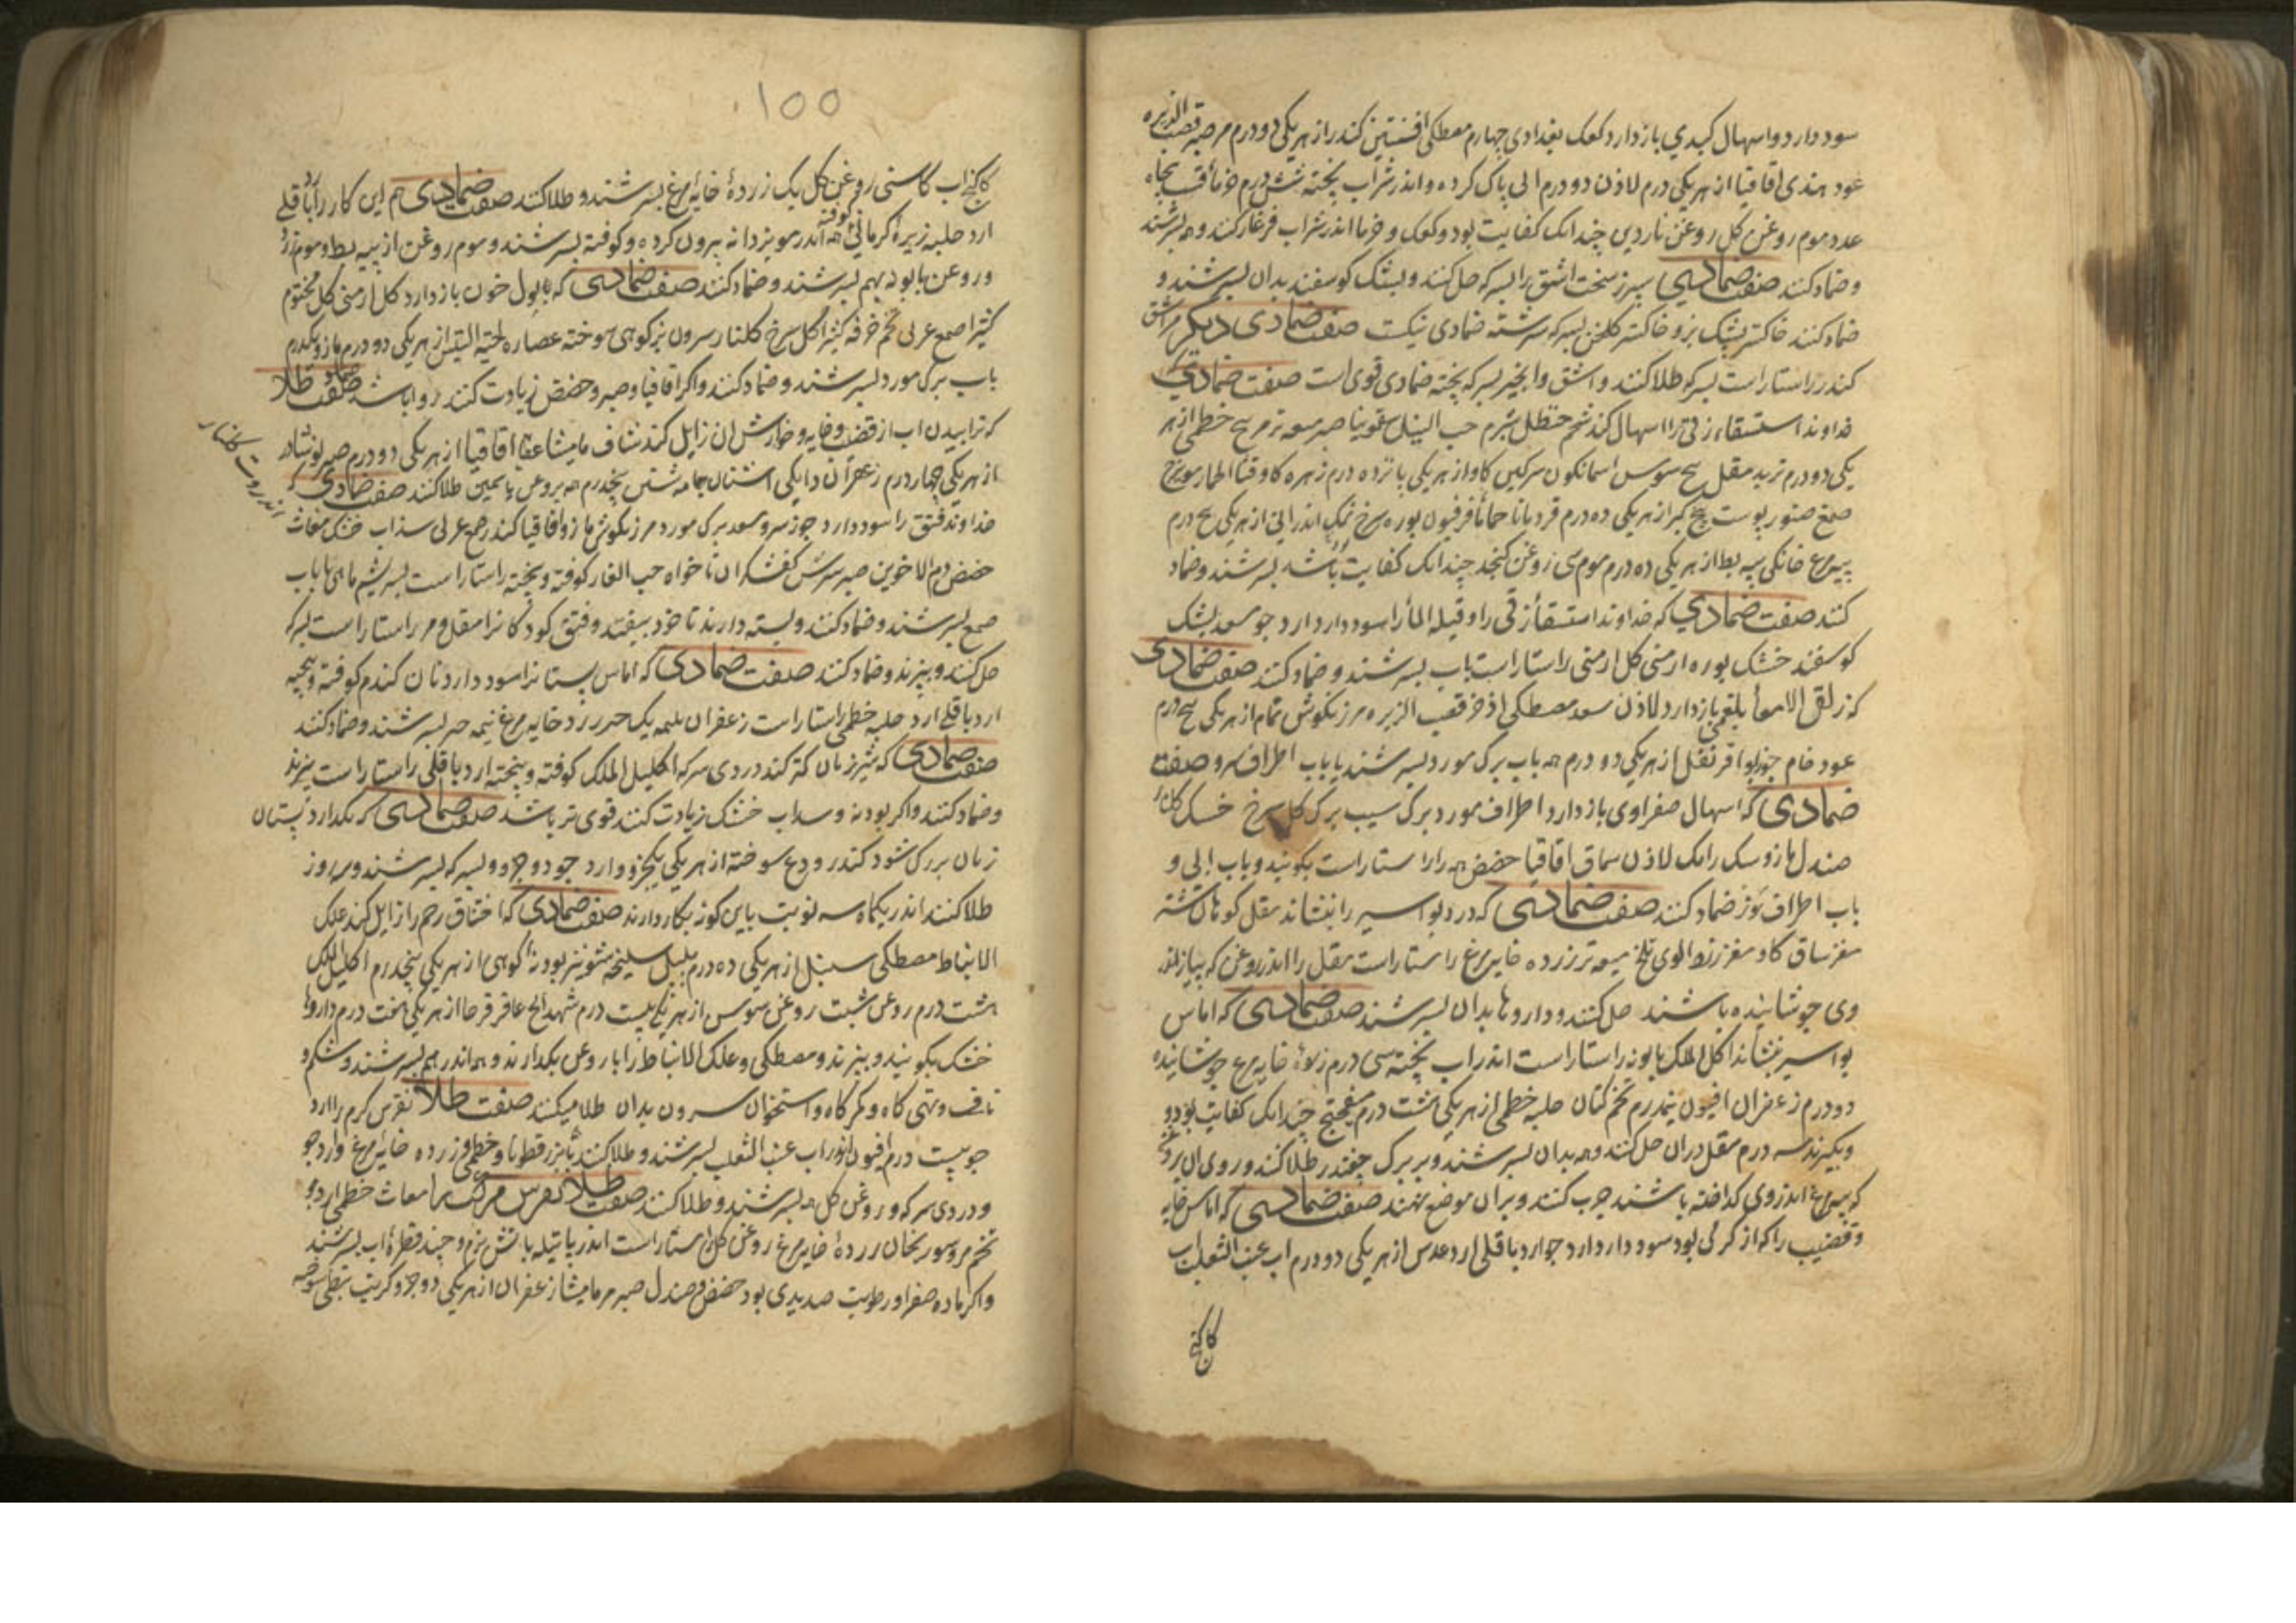 سود دارد و اسهال کبدی بازدارد کعک بغدادی چهارم مصطکی افسنتین کندر از هر یکی دو درم مر صبر قصب الذریره
عود هندی اقاقیا از هر یکی درم لادن دو درم الی پاک کرده و اندر شراب پخته شش درم خرما قسب پنجاه
عدد موم روغن کل روغن ناردین چندانک کفایت بود و کعک و خرما اندر شراب فرغار کنند و همه بسرشند
و ضماد کنند صفت ضمادی سپرز سخت اشق را بسرکه حل کنند و بشک کوسفند بدان بسرشند و
ضماد کنند خاکستر پشک بز و خاکستر کلخن بسرکه سرشته ضمادی نیکست صفت ضمادی دیکر مر اشق
کندر راستاراست بسرکه طلا کنند و اشق و انجیر بسرکه پخته ضمادی قوی است صفت ضمادی که
خداوند استسقاء زقی را اسهال کند شحم حنظل شبرم حب النیل سقمونیا صبر میعه تر مر بیخ خطمی از هر
یکی دو درم تربد مقل بیخ سوسن اسمانکون سرکین کاو از هر یکی پانزده درم زهره کاو قثا الحمار مویزج
صمغ صنوبر پوست بیخ کبر از هر یکی ده درم قردمانا حماما فرفیون بوره سرخ نمک اندرانی از هر یکی پنج درم
پیه مرغ خانکی پیه بط از هر یکی ده درم موم سی روغن کنجد چندانک کفایت باشد بسرشند و ضماد
کنند صفت ضمادی که خداوند استسقاء زقی را و قیلة الماء را سود دارد آرد جو سعد پشک
کوسفند خشک بوره ارمنی کل ارمنی راستاراست باب بسرشند و ضماد کنند صفت ضمادی
که زلق الامعا بلغمی بازدارد لادن سعد مصطکی اذخر قصب الزیره مرزنکوش نمام از هر یکی پنج درم
عود خام جوزبوا قرنفل از هر یکی دو درم همه باب برک مورد بسرشند یا باب اطراف سرو صفت
ضمادی که اسهال صفراوی بازدارد اطراف مورد برک سیب برک کل سرخ خشک کلنار
صندل مازو سک رامک لادن سماق اقاقیا حضض همه را راستاراست بکوبند و باب ابی و
باب اطراف توز ضماد کنند صفت ضمادی که درد بواسیر را بنشاند مقل کوهان شتر
مغز ساق کاو مغز زردالوی تلخ میعه تر زرده خایه مرغ راستاراست مقل را اندر روغن که پیاز اندر
وی جوشانیده باشند حل کنند و داروها بدان بسرشند صفت ضمادی که اماس
بواسیر بنشاند اکلیل الملک بابونه راستاراست اندر اب پخته سی درم زرده خایه مرغ جوشانیده
دو درم زعفران افیون نیم درم تخم کتان حلبه خطمی از هر یکی هشت درم میفختج چندانک کفایت بود و
و بکیرند سه درم مقل در آن حل کنند و همه بدان بسرشند و بر برک چغندر طلا کنند و روی ان بروغن
که پیه مرغ اندر وی کداخته باشند چرب کنند و بر ان موضع نهند صفت ضمادی که اماس خایه
و قضیب را که از کرمی بود سود دارد ارد جو ارد باقلی ارد عدس از هر یکی دو درم اب عنب الثعلب اب
کاکنج
۱۵۵
کاکنج اب کاسنی روغن کل یک زرده خایه مرغ بسرشند و طلا کنند صفت ضمادی هم این کار را ارد باقلی
ارد حلبه زیره کرمانی کوفته همه اندر مویز دانه بیرون کرده و کوفته بسرشند و موم روغن از پیه بط و موم زرد
و روغن بابونه بهم بسرشند و ضماد کنند صفت ضمادی که بابول خون بازدارد کل ارمنی کل مختوم
کثیرا صمغ عربی تخم خرفه کثیرا کل سرخ کلنار سرون بز کوهی سوخته عصاره لحیة التیس از هر یکی دو درم مازو یکدرم
باب برک مورد بسرشند و ضماد کنند و اکر اقاقیا و صبر و حضض زیادت کنند روا باشد صفت طلا
که ترابیدن اب از قضیب و خایه و خارش ان زایل کند شیاف مامیثا عفا اقاقیا از هر یکی دو درم صبر نوشادر
انزروت کلنار
از هر یکی چهار درم زعفران دانکی اشنان جامه شستن پنجدرم همه بروغن یاسمین طلا کنند صفت ضمادی که
خداوند فتق را سود دارد جوز سرو سعد برک مورد مرزنکوش مازو اقاقیا کندر صمغ عربی سذاب خشک مغاث
حضض دم الاخوین صبر سرش کفشکران ناخواه حب الغار کوفته و پخته راستاراست بسریشم ماهی یا باب
صمغ بسرشند و ضماد کنند و بسته دارند تا خود بیفتد و فتق کودکانرا مقل و مر راستاراست بسرکه
حل کنند و بپزند و ضماد کنند صفت ضمادی که اماس پستانرا سود دارد نان کندم کوفته و بیخته
ارد باقلی ارد حلبه خطمی راستاراست زعفران نیمه یک جزء زرد خایه مرغ نیمه همه بسرشند و ضماد کنند
صفت ضمادی که شیر زنان کمتر کند دردی سرکه اکلیل الملک کوفته و بیخته ارد باقلی راستاراست بپزند
و ضماد کنند و اکر بودنه و سداب خشک زیادت کنند قوی تر باشد صفت ضمادی که نکذارد پستان
زنان بزرک شود کندر ودع سوخته از هر یکی یکجزو و ارد جو دو جزو و بسرکه بسرشند و سه روز
طلا کنند اندر یکماه سه نوبت باین کونه بکار دارند صفت ضمادی که اختناق رحم را زایل کند علک
الانباط مصطکی سنبل از هر یکی ده درم پلپل سلیخه شونیز بودنه کوهی از هر یکی پنجدرم اکلیل الملک
هشت درم روغن شبت روغن سوسن از هر یکی بیست درم شهدانج عاقرقرحا از هر یکی هفت درم داروها
خشک بکوبند و بپزند و مصطکی و علک الانباط را با روغن بکدازند و همه اندر هم بسرشند و شکم و
ناف و تهی کاه و کمرکاه و استخوان سرون بدان طلا میکنند صفت طلا نقرس کرم را ارد
جو بیست درم افیون اندر اب عنب الثعلب بسرشند و طلا کنند یا بزرقطونا و خطمی و زرده خایه مرغ و ارد جو
و دردی سرکه و روغن کل همه بسرشند و طلا کنند صفت طلا نقرس مرکب را مغاث خطمی ارد جو
تخم مرو سورنجان زرده خایه مرغ روغن کل راستاراست اندر پاتیله باتش نرم و چند قطره اب بسرشند
و اکر ماده صفرا و رطوبت صدیدی بود حضض و صندل صبر مر مامیثا زعفران از هر یکی دو جزو کبریت نبطی سوخته